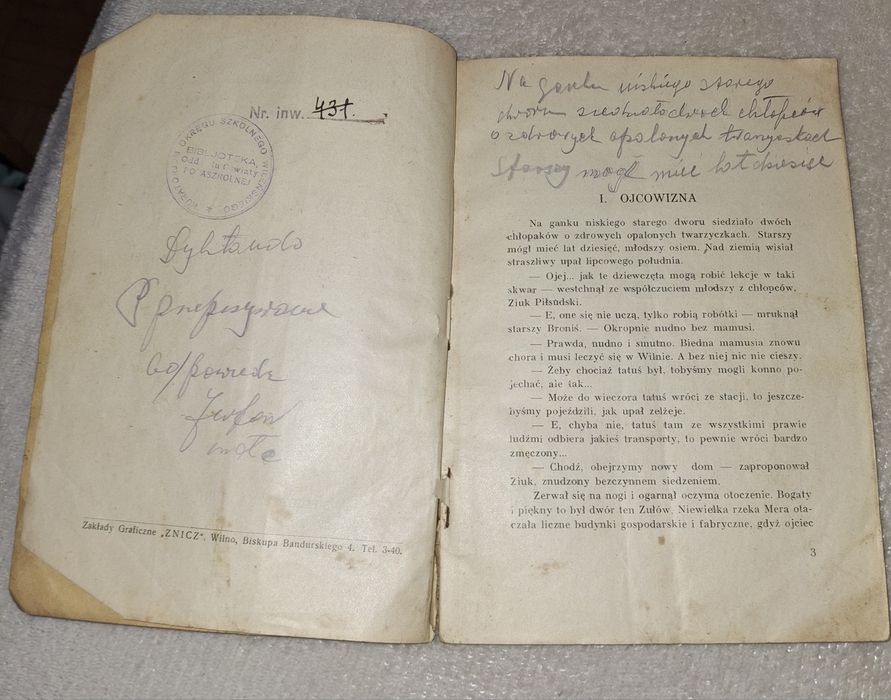 Nr. inw. 431.
KURATORIUM OKRĘGU SZKOLNEGO WILEŃSKIEGO
BIBLJOTEKA
Oddz. Oświaty
POZASZKOLNEJ
Dyktando
przepisywanie
Zakłady Graficzne „ZNICZ", Wilno, Biskupa Bandurskiego 4. Tel. 3-40.
Na ganku niskiego starego
dworu siedziało dwóch chłopców
o zdrowych opalonych twarzyczkach
Starszy mógł mieć lat dziesięć
I. OJCOWIZNA
Na ganku niskiego starego dworu siedziało dwóch
chłopaków o zdrowych opalonych twarzyczkach. Starszy
mógł mieć lat dziesięć, młodszy osiem. Nad ziemią wisiał
straszliwy upał lipcowego południa.
— Ojej... jak te dziewczęta mogą robić lekcje w taki
skwar — westchnął ze współczuciem młodszy z chłopców,
Ziuk Piłsudski.
— E, one się nie uczą, tylko robią robótki — mruknął
starszy Broniś. — Okropnie nudno bez mamusi.
— Prawda, nudno i smutno. Biedna mamusia znowu
chora i musi leczyć się w Wilnie. A bez niej nic nie cieszy.
— Żeby chociaż tatuś był, tobyśmy mogli konno po-
jechać, ale tak...
— Może do wieczora tatuś wróci ze stacji, to jeszcze-
byśmy pojeździli, jak upał zelżeje.
— E, chyba nie, tatuś tam ze wszystkimi prawie
ludźmi odbiera jakieś transporty, to pewnie wróci bardzo
zmęczony...
— Chodź, obejrzymy nowy dom — zaproponował
Ziuk, znudzony bezczynnem siedzeniem.
Zerwał się na nogi i ogarnął oczyma otoczenie. Bogaty
i piękny to był dwór ten Zułów. Niewielka rzeka Mera ota-
czała liczne budynki gospodarskie i fabryczne, gdyż ojciec
3